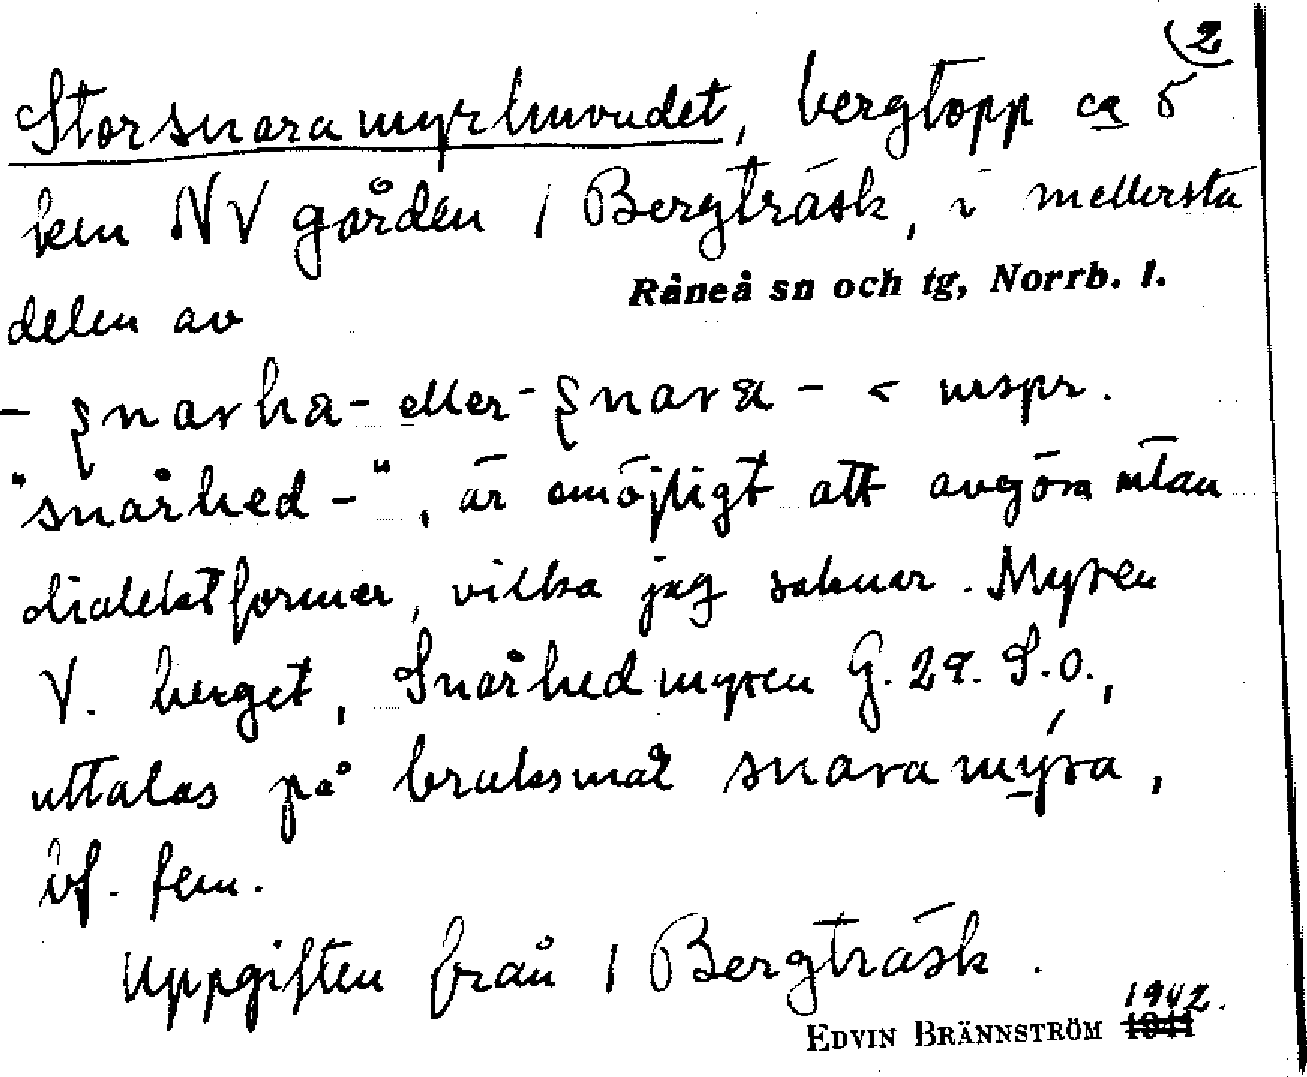 2
Storsnaramyrhuvudet, bergtopp ca 5
km NV gården 1 Bergträsk, i mellersta
Råneå sn och tg, Norrb. l.
delen av
- snarha- eller - snara - < urspr.
"snårhed -", är omöjligt att avgöra utan
dialektformer, vilka jag saknar. Myren
V. berget, Snårhedmyren G. 29. S.O.,
uttalas på bruksmål snaramýra,
bf. fem.
Uppgiften från 1 Bergträsk.
1942.
EDVIN BRÄNNSTRÖM 1941